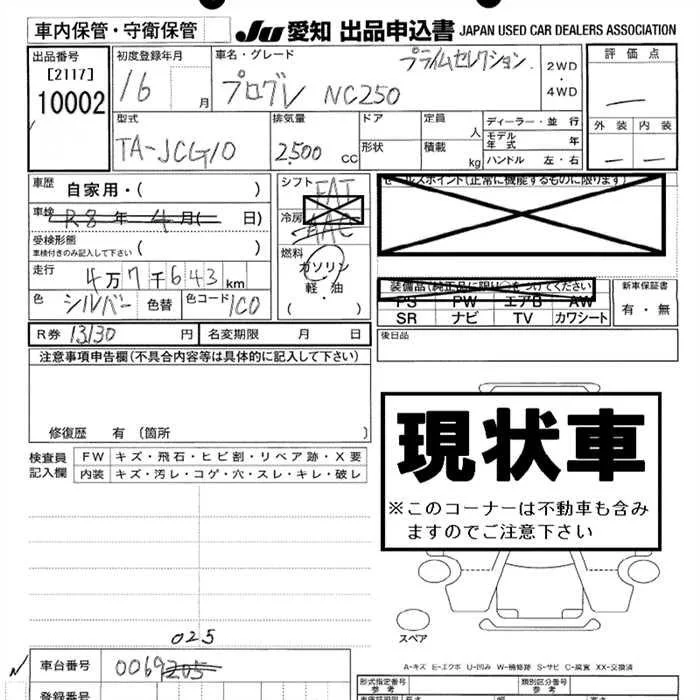 車内保管・守衛保管
Ju 愛知 出品申込書 JAPAN USED CAR DEALERS ASSOCIATION
出品番号
[2117]
10002
初度登録年月
16 月
車名・グレード
プライムセレクション
プログレ NC250
2WD
・
4WD
評価点
—
外装 内装
— —
型式
TA-JCG10
排気量
2,500 cc
ドア
形状
定員 人
積載 kg
ディーラー・並行
モデル年式 年
ハンドル 左・右
車歴 自家用・( )
車検 R8年 4月( 日)
受検形態
車検付きのみ記入して下さい ( )
走行 4万7千643km
色 シルバー 色替 色コード 1C0
シフト FAT
冷房 AAC
燃料
ガソリン
軽・油
( )
セールスポイント(正常に機能するものに限ります)
装備品(純正品に限り○をつけてください)
PS PW エアB AW
SR ナビ TV カワシート
新車保証書
有・無
R券 13130 円 名変期限 月 日
後日品
注意事項申告欄(不具合内容等は具体的に記入して下さい)
修復歴 有 〔箇所 〕
検査員記入欄
FW キズ・飛石・ヒビ割・リペア跡・X要
内装 キズ・汚レ・コゲ・穴・スレ・キレ・破レ
現状車
※このコーナーは不動車も含み
ますのでご注意下さい
スペア
025
車台番号 0069205
A-キズ E-エクボ U-凹み W-補修跡 S-サビ C-腐食 XX-交換済
登録番号
形式指定番号
参考
類別区分番号
参考